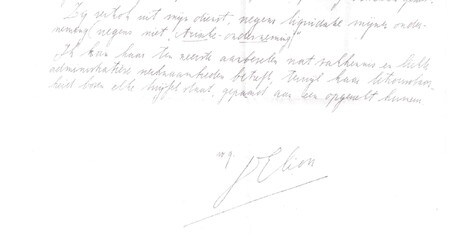 Zij vertrok uit mijn dienst, wegens liquidatie mijner onder-
neming, wegens niet "Arische-onderneming"
"Ik kan haar ten zeerste aanbevelen wat vakkennis en hulk
administratieve werkzaamheden betreft, terwijl haar betrouwbaar-
heid boven elke twijfel staat, gepaard aan een opgewekt humeur.
w.g.
J Elion